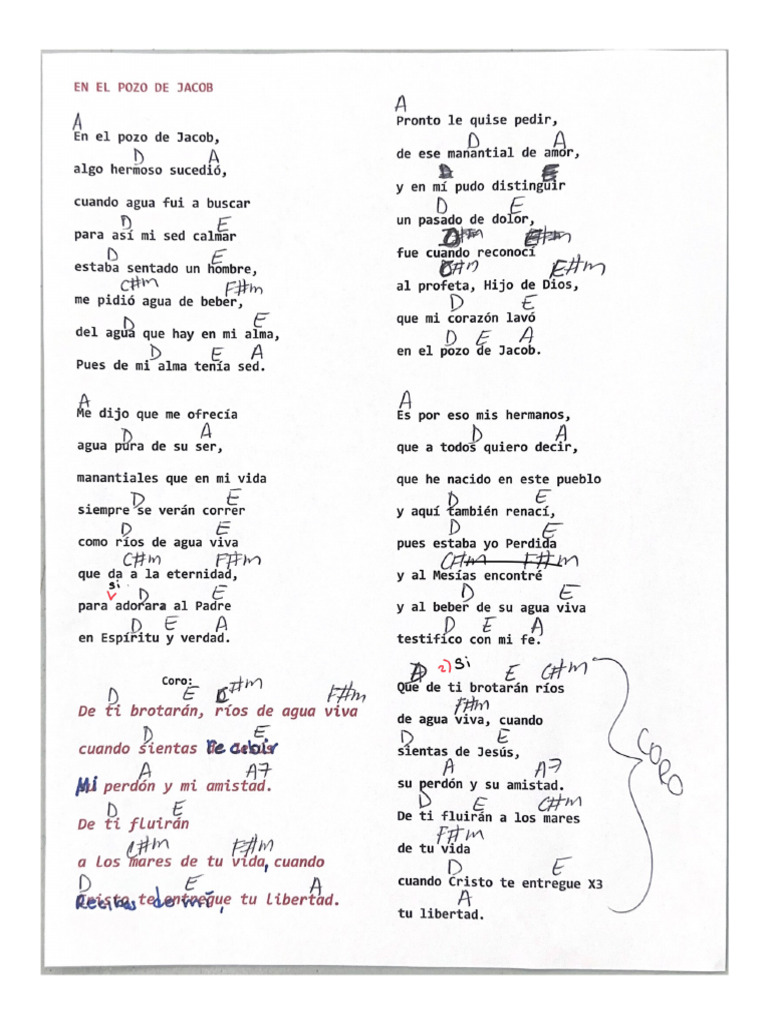 EN EL POZO DE JACOB
A
En el pozo de Jacob,
D A
algo hermoso sucedió,
cuando agua fui a buscar
D E
para así mi sed calmar
D E
estaba sentado un hombre,
C#m F#m
me pidió agua de beber,
D E
del agua que hay en mi alma,
D E A
Pues de mi alma tenía sed.
A
Me dijo que me ofrecía
D A
agua pura de su ser,
manantiales que en mi vida
D E
siempre se verán correr
D E
como ríos de agua viva
C#m F#m
que da a la eternidad,
si D E
para adorara al Padre
D E A
en Espíritu y verdad.
Coro:
D E C#m F#m
De ti brotarán, ríos de agua viva
D E
cuando sientas Recibir
A A7
Mi perdón y mi amistad.
D E
De ti fluirán
C#m F#m
a los mares de tu vida, cuando
D E A
Cristo te entregue tu libertad.
Recibas de mí,
A
Pronto le quise pedir,
D A
de ese manantial de amor,
D E
y en mí pudo distinguir
D E
un pasado de dolor,
C#m F#m
fue cuando reconocí
C#m F#m
al profeta, Hijo de Dios,
D E
que mi corazón lavó
D E A
en el pozo de Jacob.
A
Es por eso mis hermanos,
D A
que a todos quiero decir,
que he nacido en este pueblo
D E
y aquí también renací,
D E
pues estaba yo Perdida
C#m F#m
y al Mesías encontré
D E
y al beber de su agua viva
D E A
testifico con mi fe.
D 2) Si E C#m
Que de ti brotarán ríos
F#m
de agua viva, cuando
D E
sientas de Jesús,
A A7
su perdón y su amistad.
D E C#m
De ti fluirán a los mares
F#m
de tu vida
D E
cuando Cristo te entregue X3
A
tu libertad.
CORO